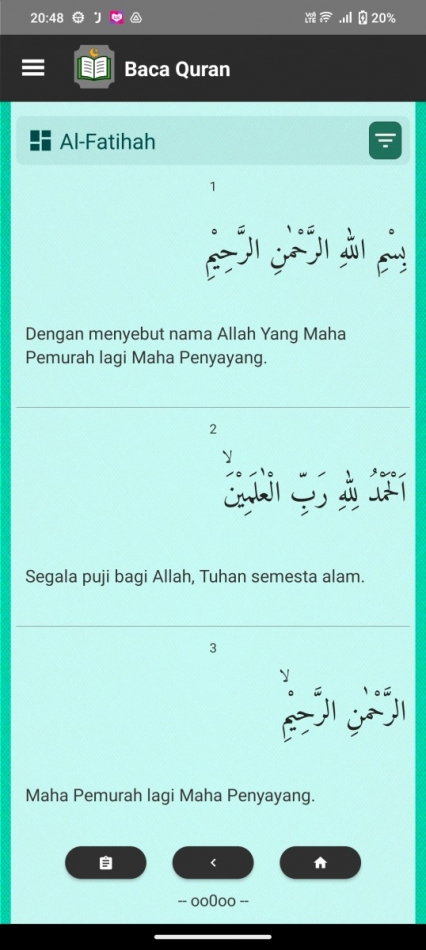 20:48 20%
Baca Quran
Al-Fatihah
1
بِسْمِ اللّٰهِ الرَّحْمٰنِ الرَّحِيْمِ
Dengan menyebut nama Allah Yang Maha
Pemurah lagi Maha Penyayang.
2
اَلْحَمْدُ لِلّٰهِ رَبِّ الْعٰلَمِيْنَۙ
Segala puji bagi Allah, Tuhan semesta alam.
3
الرَّحْمٰنِ الرَّحِيْمِۙ
Maha Pemurah lagi Maha Penyayang.
-- oo0oo --